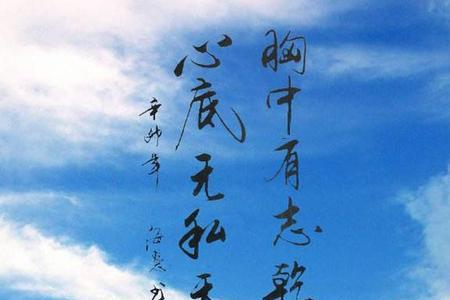 胸中有志乾
心底无私天
辛卯年